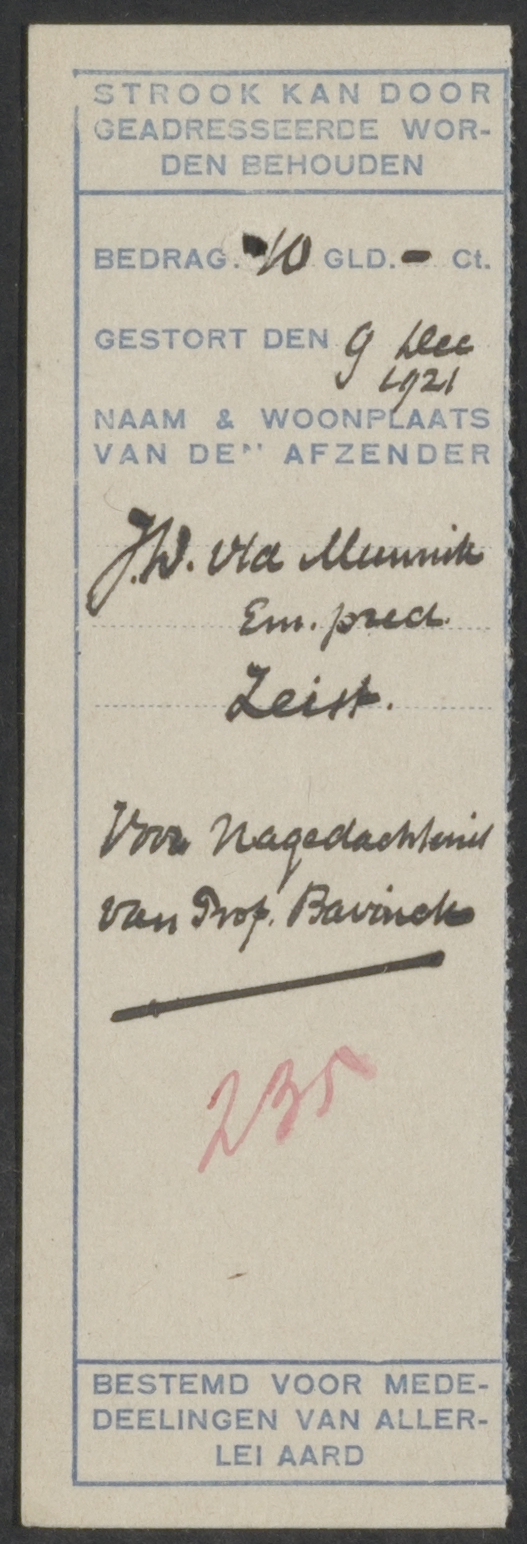 STROOK KAN DOOR
GEADRESSEERDE WOR-
DEN BEHOUDEN
BEDRAG. 10 GLD. - Ct.
GESTORT DEN 9 Dec
1921
NAAM & WOONPLAATS
VAN DEN AFZENDER
J.W. vld Munnik
Em. pred.
Zeist.
Voor Nagedachtenis
van Prof. Bavinck
235
BESTEMD VOOR MEDE-
DEELINGEN VAN ALLER-
LEI AARD